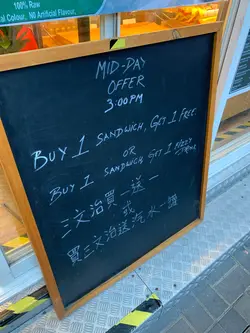 100% Raw
al Colour, No Artificial Flavour,
MID-DAY
OFFER
3:00PM
BUY 1 SANDWICH, GET 1 FREE
OR
BUY 1 SANDWICH, GET 1 FIZZY
三文治買一送一
或
買三文治送汽水一罐